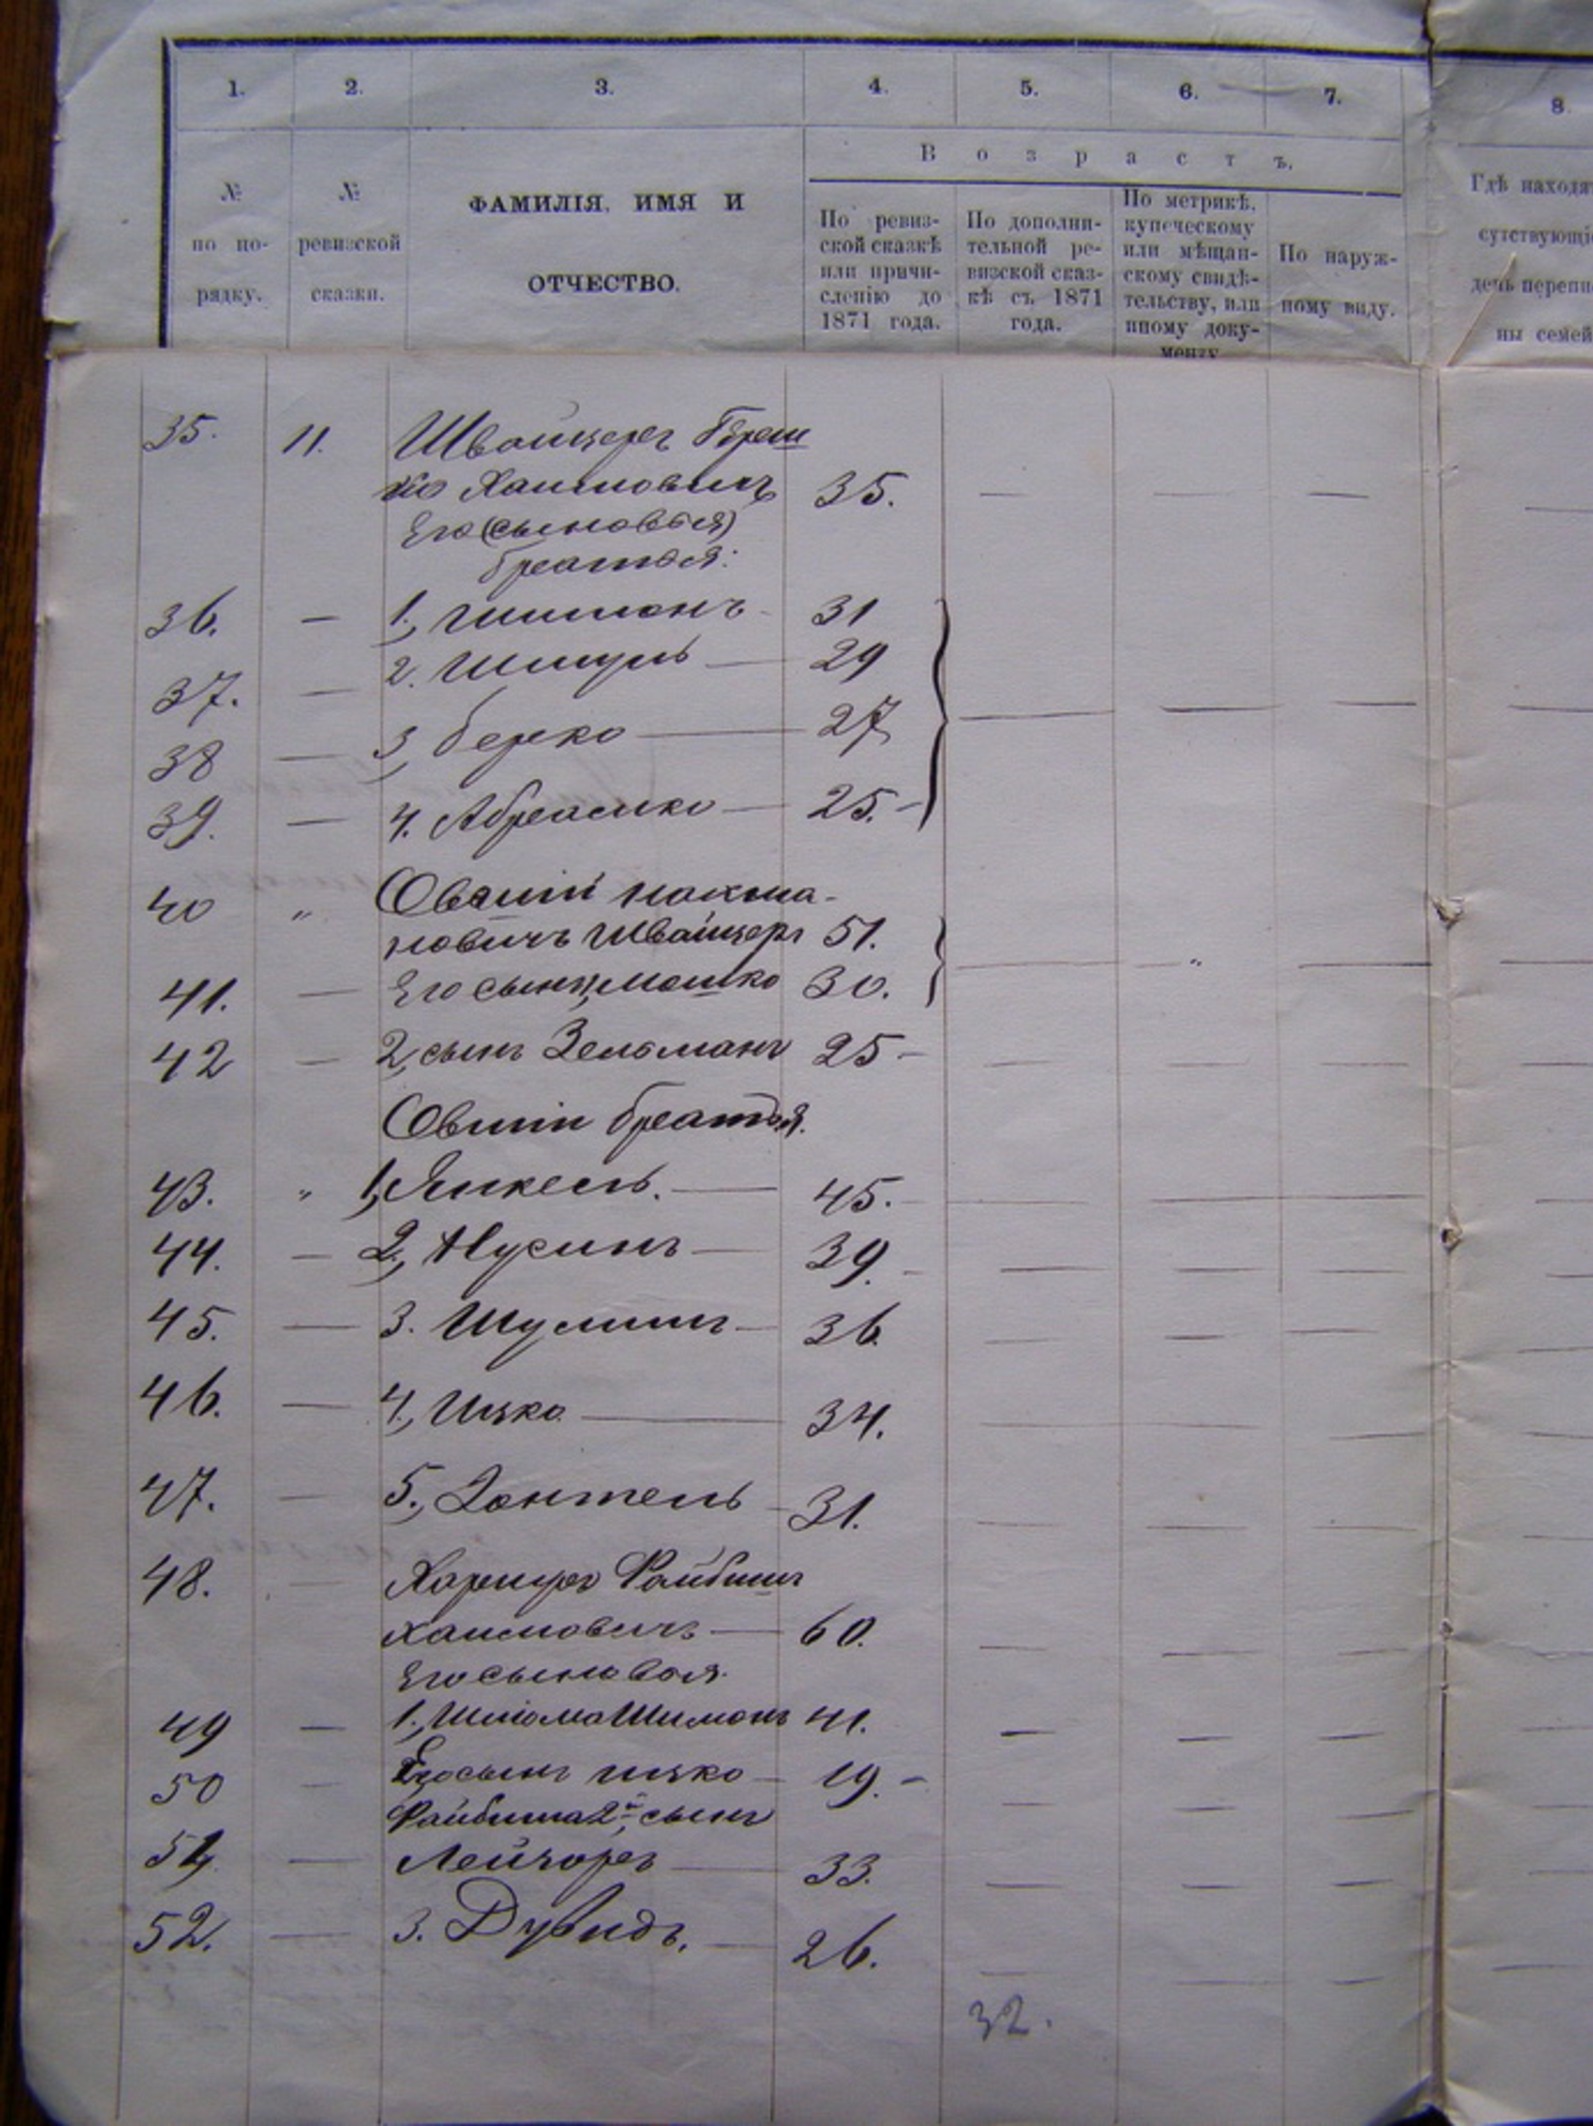 1. 2. 3. 4. 5. 6. 7. 8
В о з р а с т ъ.
№ по по-рядку.
№ ревизской сказки.
ФАМИЛІЯ, ИМЯ И
ОТЧЕСТВО.
По ревиз-
ской сказкѣ
или причи-
сленію до
1871 года.
По дополни-
тельной ре-
визской сказ-
кѣ съ 1871
года.
По метрикѣ,
купеческому
или мѣщан-
скому свидѣ-
тельству, или
иному доку-
менту
По наруж-
ному виду.
Гдѣ находя
сутствующі
день перепи
ны семей
35. 11. Швайцеръ
Хаимовичъ 35.
Его (сыновья)
братья:
36. — 1., Шимонъ 31
37. — 2. Шмуль — 29
38 — 3, Берко — 27
39. — 4. Абрамко — 25.
40 " Овшій Нахма-
новичъ Швайцеръ 51.
41. — Его сынъ, Мошко 30.
42 — 2, сынъ Зельманъ 25
Овшія братья.
43. " 1, Янкель. — 45.
44. — 2., Нусинъ — 39.
45. — 3. Шулимъ — 36.
46. — 4., Ицко — 34.
47. — 5., 31.
48. — Файбишъ
Хаимовичъ — 60.
Его сыновья.
49 — 1., Шлёма Шимонъ 41.
50 — Его сынъ Ицко — 19.
Файбиша 2й, сынъ
51. — Лейзоръ — 33.
52. — 3. Дувидъ. — 26.
32.